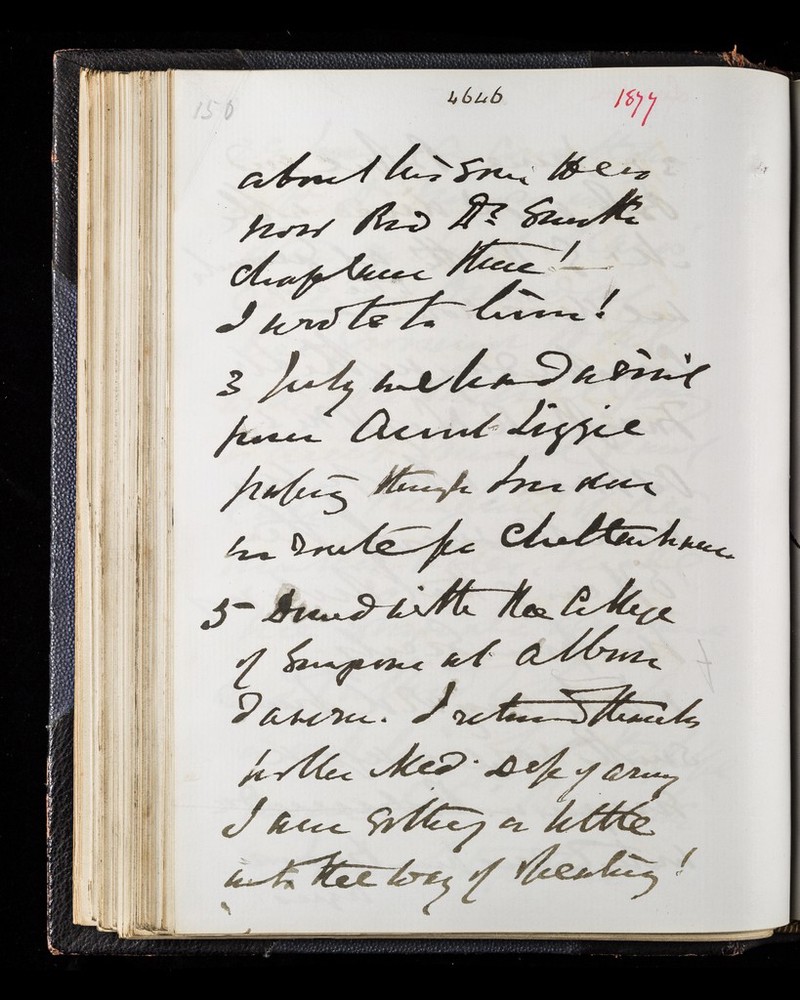 150 4646 1877
about his son Hero
now Rev Dr. Smith
chaplain there!—
I wrote to him!
3 July we had a visit
from Aunt Lizzie
passing through London
en route for Cheltenham
5 Dined with the College
of Surgeons at Albion
Tavern. I returned thanks
for the Med. Dep of army
I am getting a little
into the way of speaking!